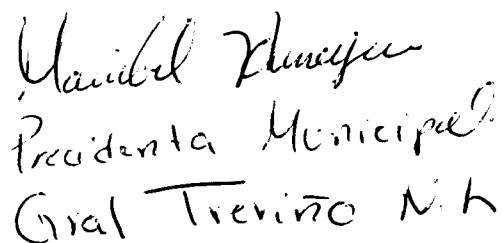 Maribel
Presidenta Municipal
Gral Treviño N.L